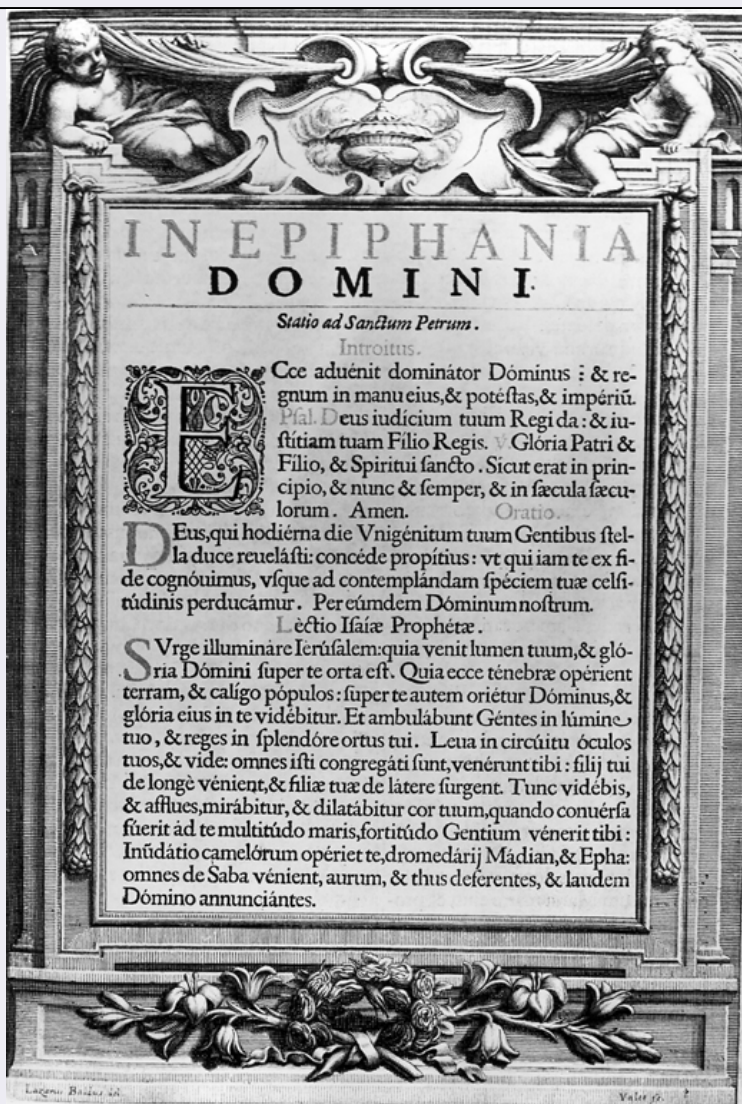 IN EPIPHANIA
DOMINI.
Statio ad Sanctum Petrum.
Introitus.
ECce aduénit dominátor Dóminus : & re-
gnum in manu eius, & potéſtas, & impériũ.
Pſal. Deus iudícium tuum Regi da: & iu-
ſtítiam tuam Fílio Regis. V Glória Patri &
Fílio, & Spiritui ſancto. Sicut erat in prin-
cipio, & nunc & ſemper, & in ſæcula ſæcu-
lorum. Amen. Oratio.
DEus, qui hodiérna die Vnigénitum tuum Gentibus ſtel-
la duce reueláſti: concéde propítius: vt qui iam te ex fi-
de cognóuimus, vſque ad contemplándam ſpéciem tuæ celſi-
túdinis perducámur. Per eúmdem Dóminum noſtrum.
Lèctio Iſaíæ Prophétæ.
SVrge illumináre Ierúſalem: quia venit lumen tuum, & gló-
ria Dómini ſuper te orta eſt. Quia ecce ténebræ opérient
terram, & calígo pópulos: ſuper te autem oriétur Dóminus, &
glória eius in te vidébitur. Et ambulábunt Géntes in lúmine
tuo, & reges in ſplendóre ortus tui. Leua in circúitu óculos
tuos, & vide: omnes iſti congregáti ſunt, venérunt tibi: filij tui
de longè vénient, & filiæ tuæ de látere ſurgent. Tunc vidébis,
& afflues, mirábitur, & dilatábitur cor tuum, quando conuérſa
fúerit ad te multitúdo maris, fortitúdo Gentium vénerit tibi:
Inũdátio camelórum opériet te, dromedárij Mádian, & Epha:
omnes de Saba vénient, aurum, & thus deferentes, & laudem
Dómino annunciántes.